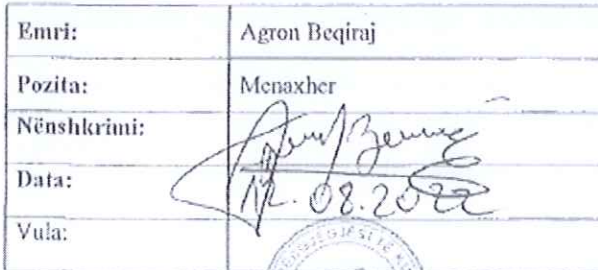 Emri: Agron Beqiraj
Pozita: Menaxher
Nënshkrimi:
Data: 12.08.2022
Vula: